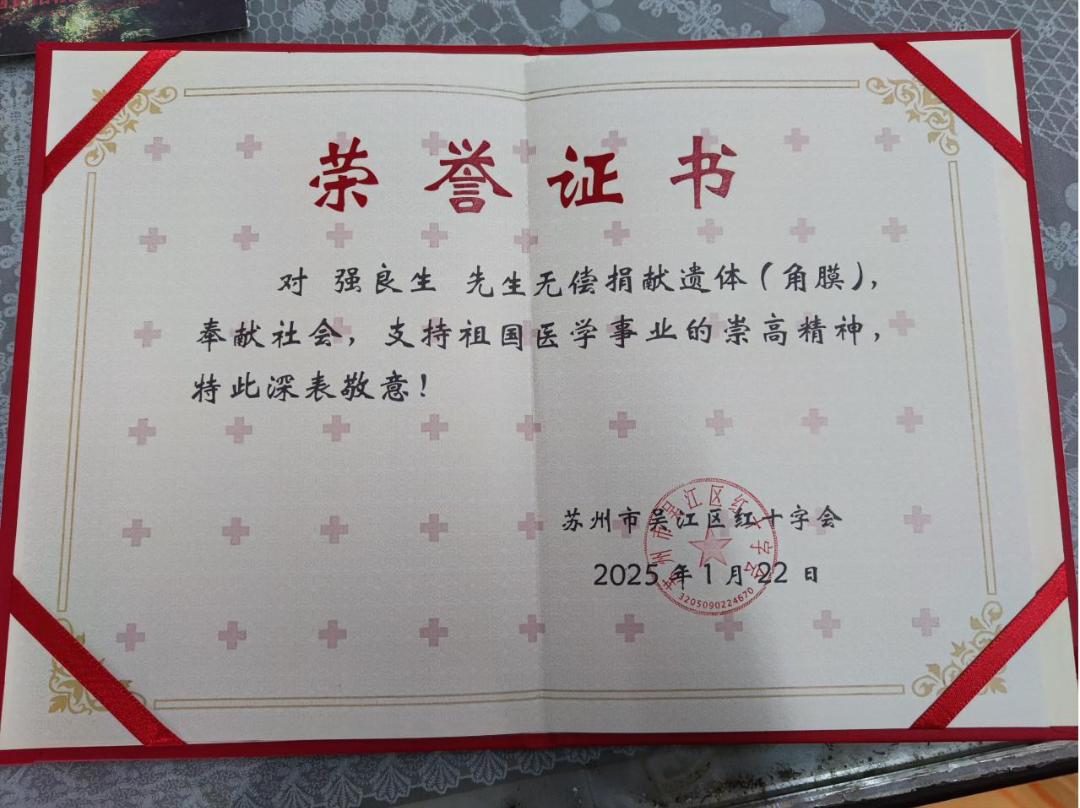 荣誉证书
对 强良生 先生无偿捐献遗体(角膜),
奉献社会,支持祖国医学事业的崇高精神,
特此深表敬意!
苏州市吴江区红十字会
2025年1月22日
苏州市吴江区红十字会
3205090224670